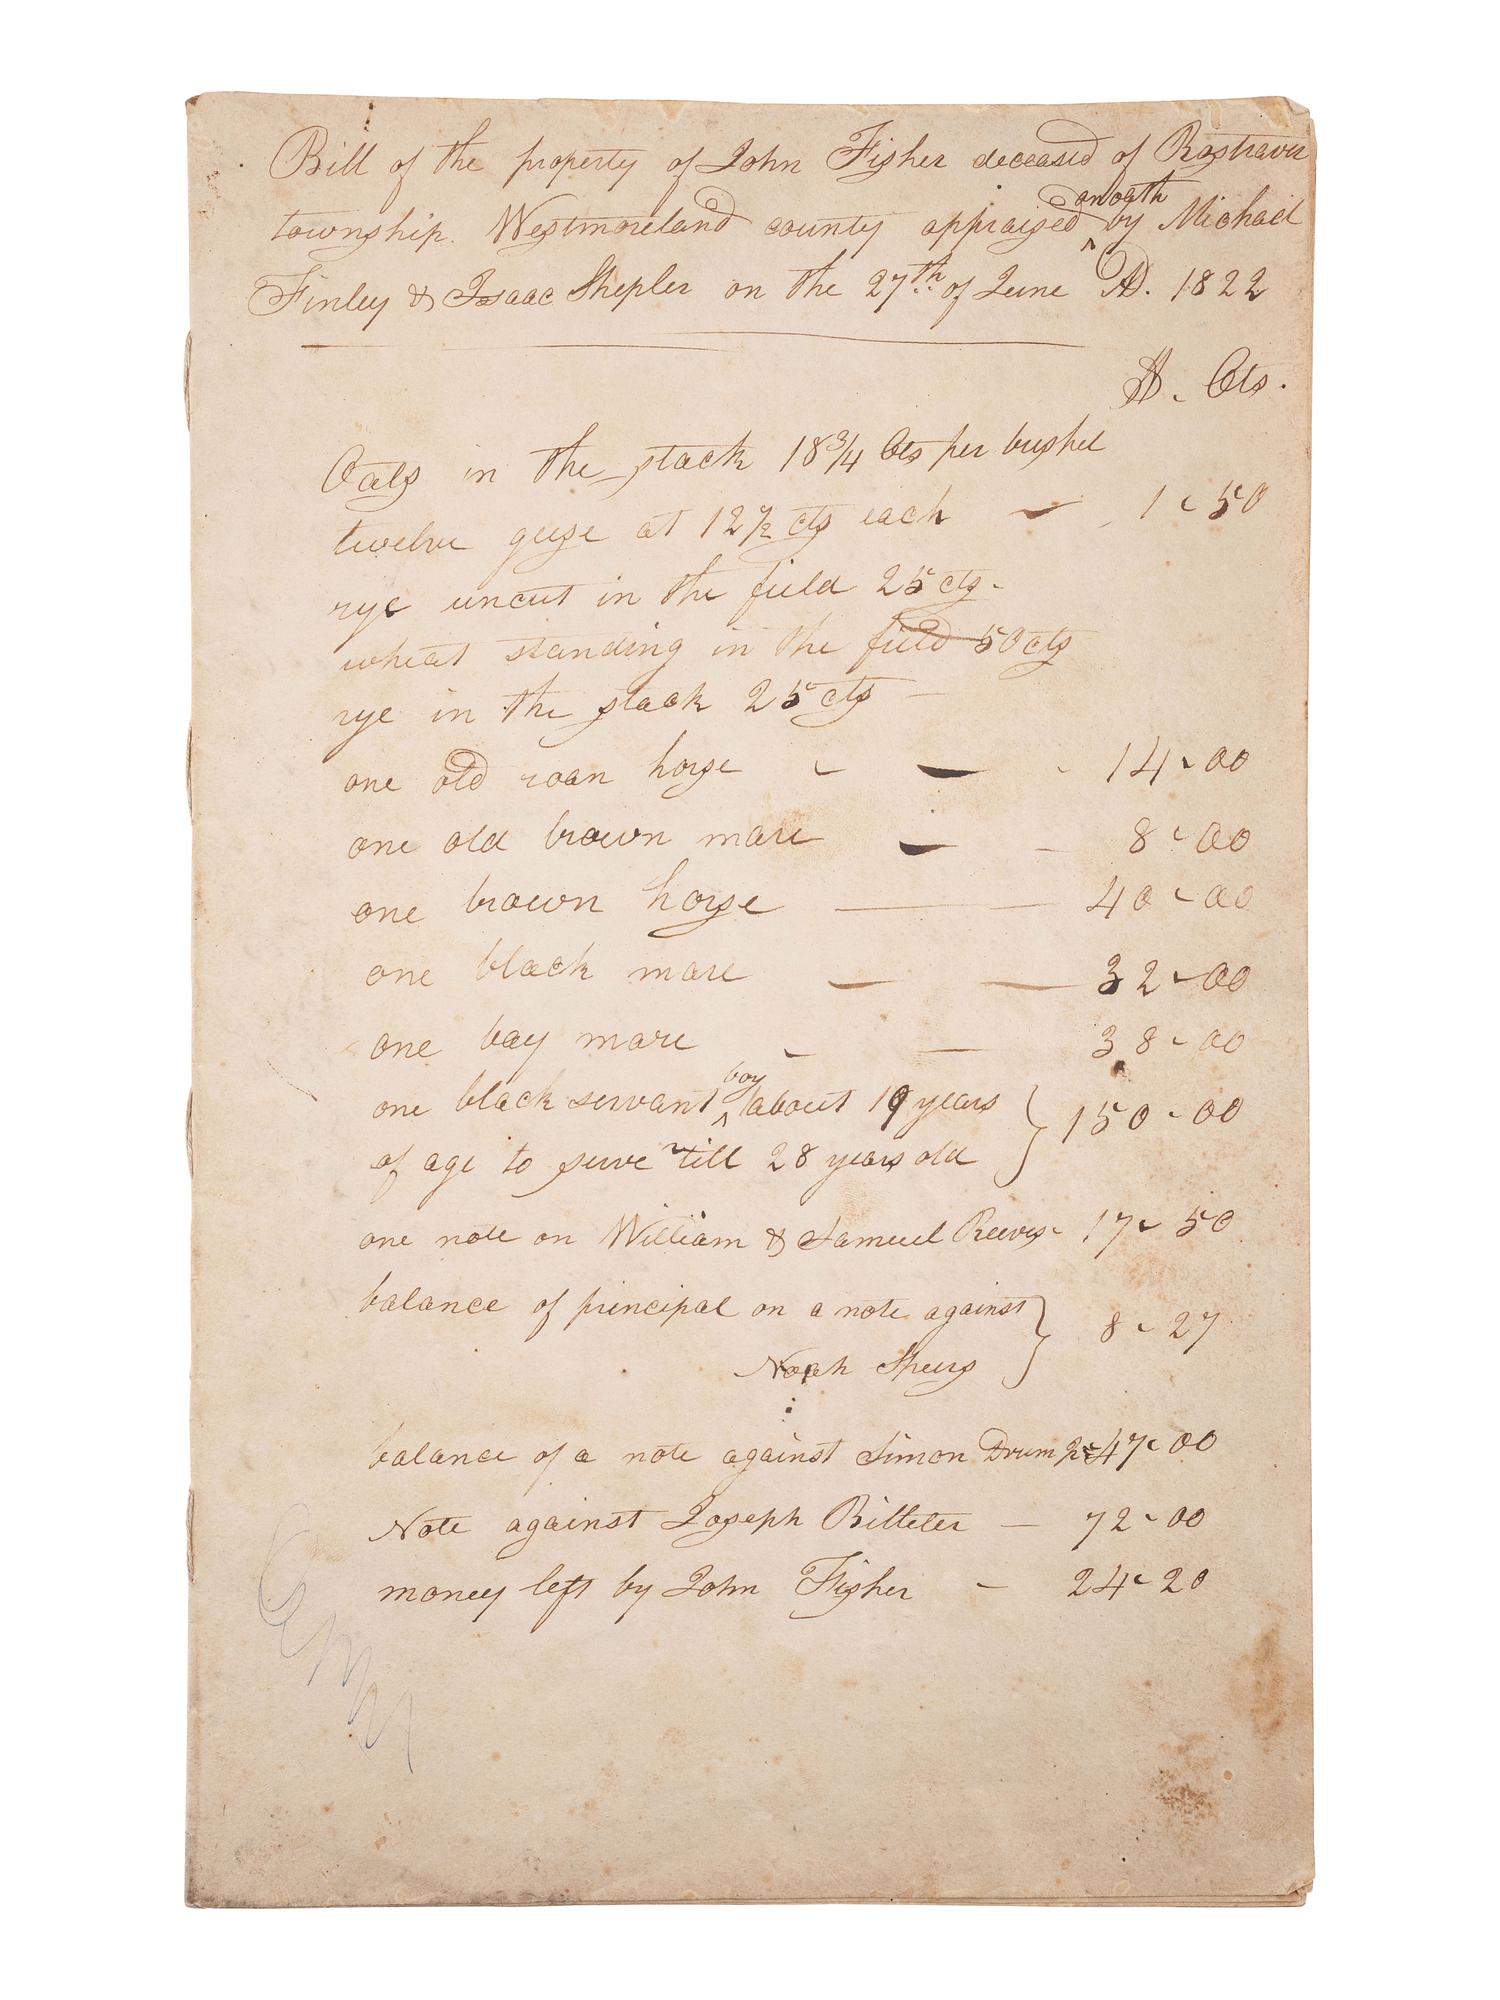 Bill of the property of John Fisher deceased of Rostraver
township. Westmoreland county appraised on oath by Michael
Finley & Isaac Shepler on the 27th of June AD. 1822
D. Cts.
Oats in the stack 18 3/4 Cts per bushel
twelve geese at 12 1/2 cts each - 1-50
rye uncut in the field 25 cts-
wheat standing in the field 50 cts
rye in the stack 25 cts -
one old roan horse - - - 14-00
one old brown mare - - 8-00
one brown horse - 40-00
one black mare - - 32-00
one bay mare - - 38-00
one black servant boy about 19 years
of age to serve till 28 years old } 150-00
one note on William & Samuel Reeves- 17-50
balance of principal on a note against
Noah Speers } 8-27
balance of a note against Simon Drum 47-00
Note against Joseph Billeter - 72-00
money left by John Fisher - 24-20